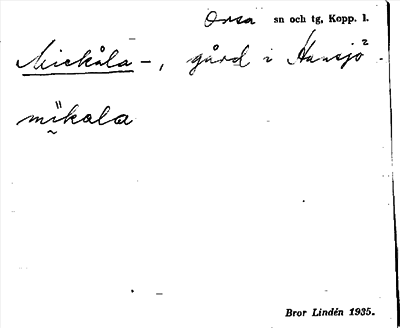 Orsa sn och tg, Kopp. l.
Mickåla-, gård i Hansjö 2.
mikala
Bror Lindén 1935.